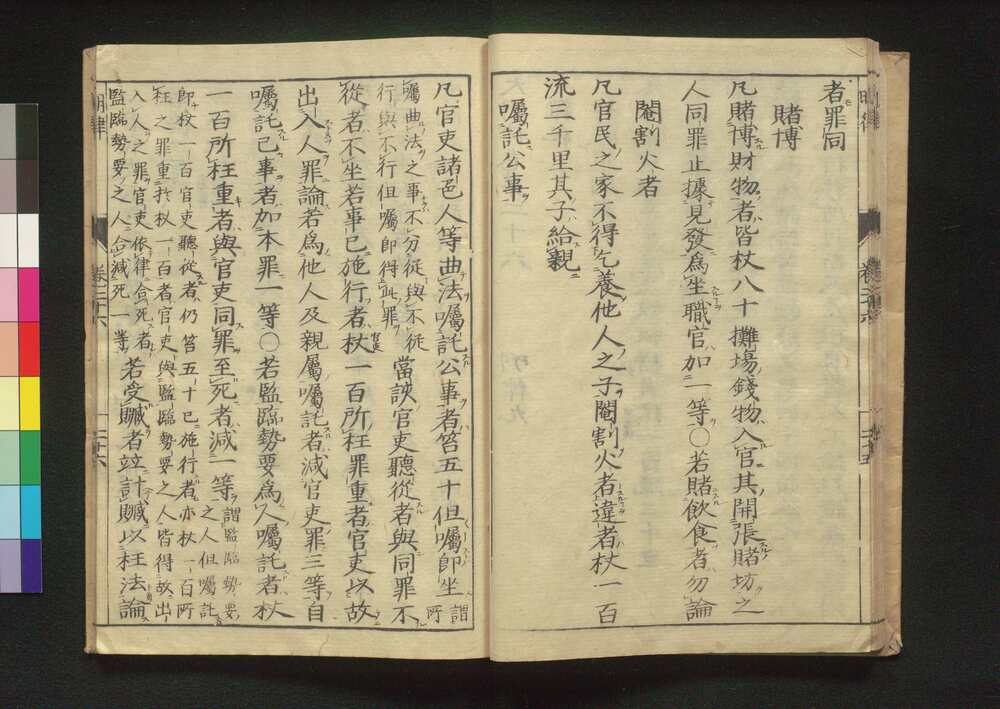 者罪同
賭博
凡賭博財物者皆杖八十攤場錢物入官其開張賭坊之
人同罪止據見發爲坐職官加一等〇若賭飲食者勿論
閹割火者
凡官民之家不得乞養他人之子閹割火者違者杖一百
流三千里其子給親
囑託公事
凡官吏諸邑人等曲法囑託公事者笞五十但囑即坐謂所
囑曲法之事不分從與不從
行與不行但囑即得此罪
當該官吏聽從者與同罪不
從者不坐若事已施行者杖一百所枉罪重者官吏以故
出入人罪論若爲他人及親屬囑託者減官吏罪三等自
囑託己事者加本罪一等〇若監臨勢要爲人囑託者杖
一百所枉重者與官吏同罪至死者減一等謂監臨勢要
之人但囑託
即杖一百官吏聽從者仍笞五十已施行者亦杖一百所
枉之罪重於杖一百者官吏與監臨勢要之人皆得故出
入人之罪官吏依律合死者
監臨勢要之人合減死一等
若受贓者並計贓以枉法論
明律
卷二十六
二十六